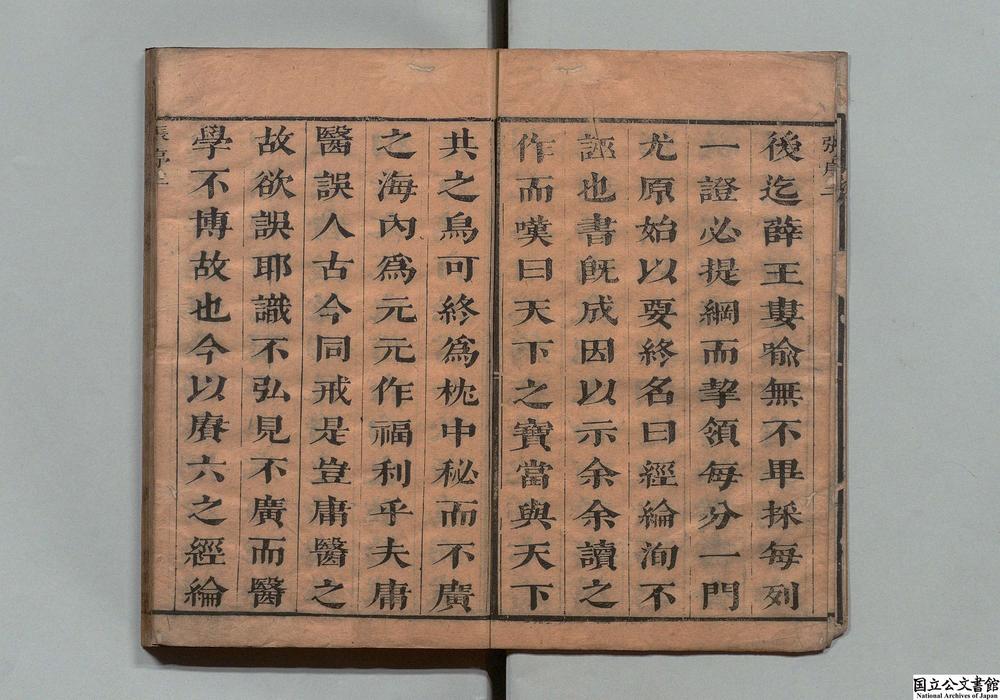 張序二
後迄薛王婁喻無不畢採每列
一證必提綱而挈領每分一門
尤原始以要終名曰經綸洵不
誣也書既成因以示余余讀之
作而嘆曰天下之寶當與天下
共之烏可終爲枕中秘而不廣
之海內爲元元作福利乎夫庸
醫誤人古今同戒是豈庸醫之
故欲誤耶識不弘見不廣而醫
學不博故也今以賡六之經綸
張序
国立公文書館
National Archives of Japan